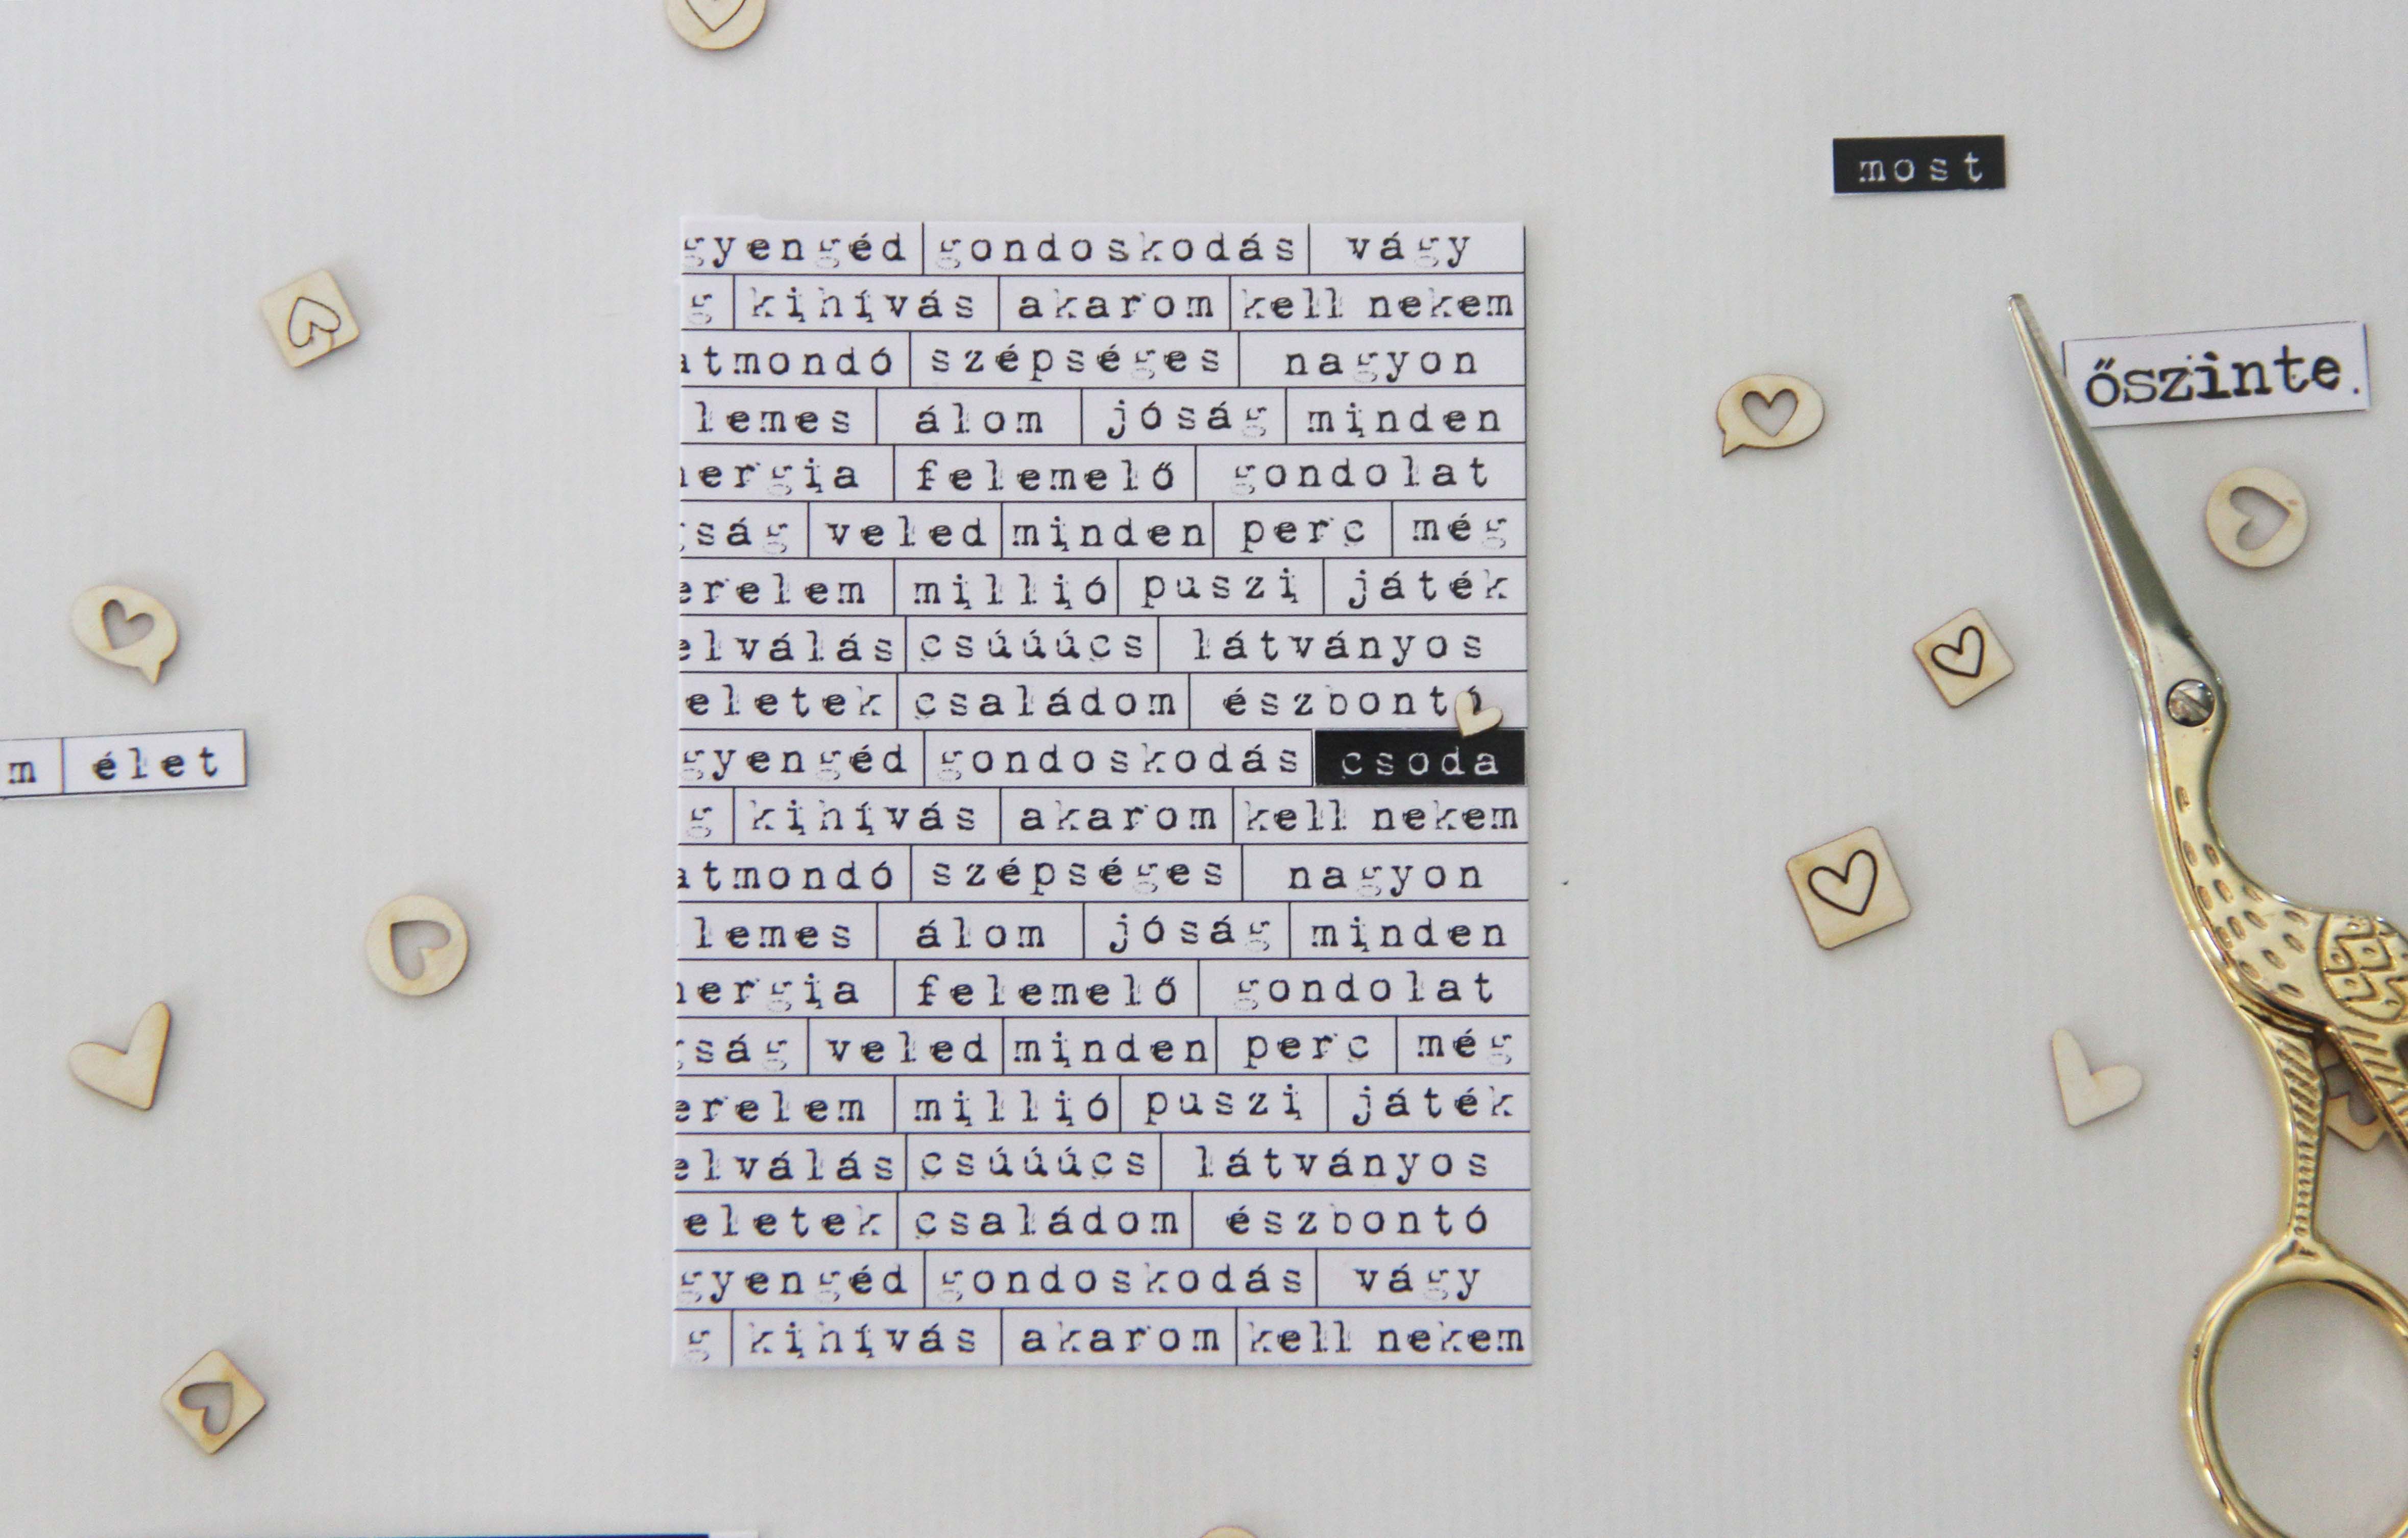 most
őszinte.
gyengéd gondoskodás vágy
g kihívás akarom kell nekem
atmondó szépséges nagyon
lemes álom jóság minden
nergia felemelő gondolat
gság veled minden perc még
erelem millió puszi játék
elválás csúúúcs látványos
eletek családom észbontó
gyengéd gondoskodás csoda
m élet
g kihívás akarom kell nekem
atmondó szépséges nagyon
lemes álom jóság minden
nergia felemelő gondolat
gság veled minden perc még
erelem millió puszi játék
elválás csúúúcs látványos
eletek családom észbontó
gyengéd gondoskodás vágy
g kihívás akarom kell nekem